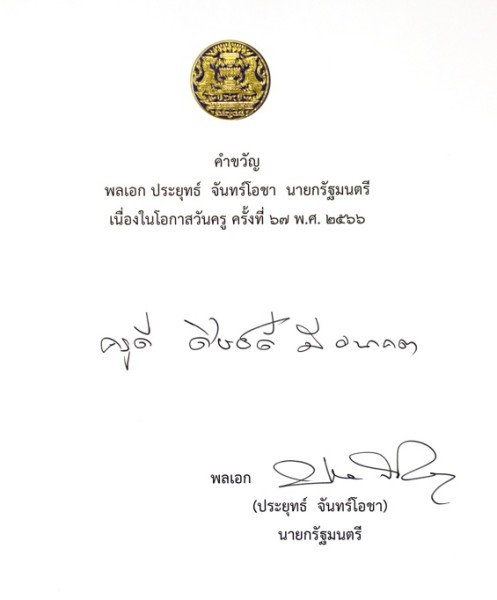 คำขวัญ
พลเอก ประยุทธ์ จันทร์โอชา นายกรัฐมนตรี
เนื่องในโอกาสวันครู ครั้งที่ ๖๗ พ.ศ. ๒๕๖๖
ครูดี ศิษย์ดี มี อนาคต
พลเอก
(ประยุทธ์ จันทร์โอชา)
นายกรัฐมนตรี